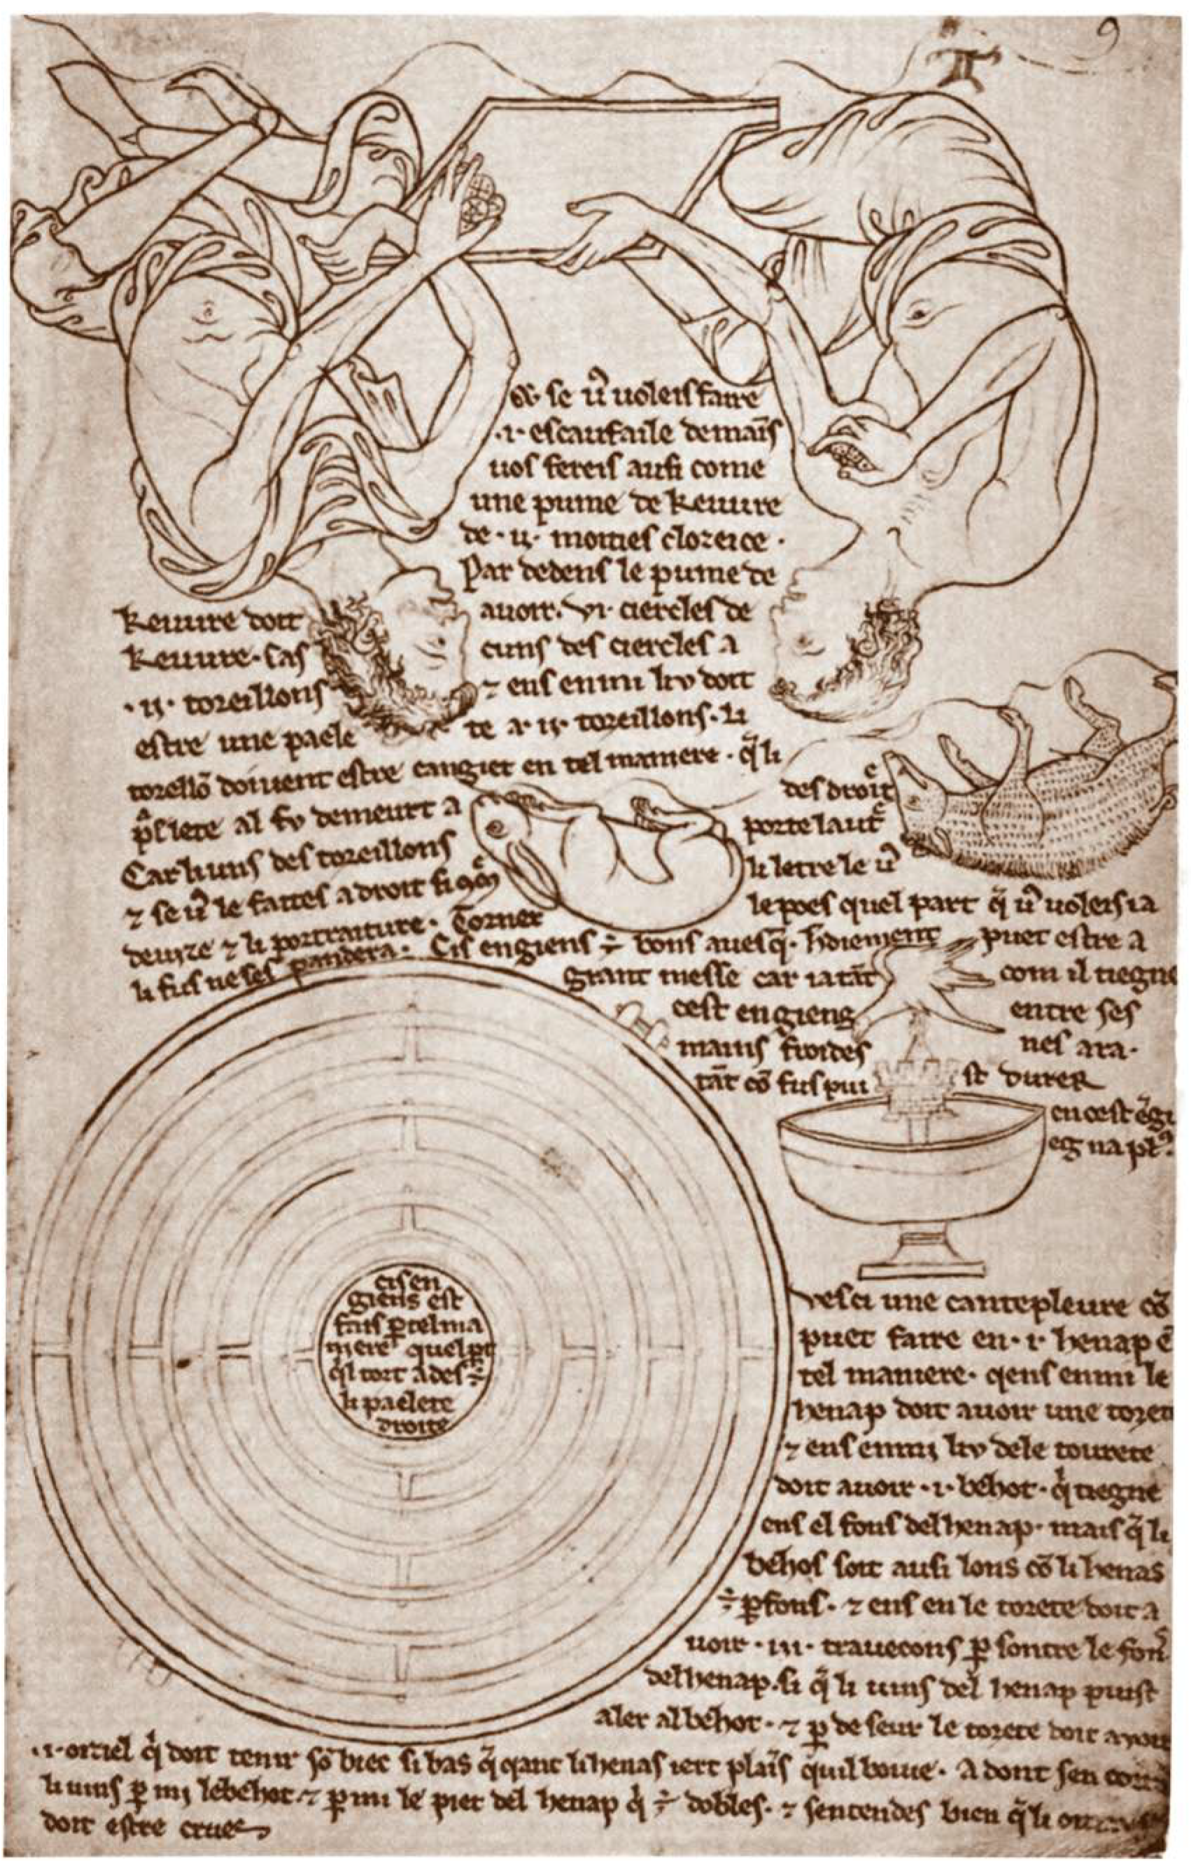 9
& se vͦ voleis faire
.i. escaufaile de mains
vos fereis ausi come
une pume de keuure
de .ii. moities clozeice .
Par dedens le pume de
keuure doit avoir .vi. ciercles de
keuure . cas cuns des ciercles a
.ii. toreillons ⁊ ens enmi liv doit
estre une paele te a .ii. toreillons . li
torellō doivent estre cangiet en tel maniere . q̄ li
p̄liete al fv demeurt a des droite
Car li uns des toreillons porte lautͤ
⁊ se vͦ le faites a droit si qͫ li letre le vͦ
devize ⁊ li portraiture . Torner le poes quel part q̄ vͦ voleis ia
li fus ne ses pandera . Cis engiens ÷ bons a vesq̄ . hdiement puet estre a
grant messe car ia tāt com il tiegne
cest engieng entre ses
mains froides nes ara .
tāt cō fus puist durer
en cest ēgi
eg na plꝰ .
cis en
giens est
fais ꝑ tel ma
niere quel ꝑt
qͥl tort ades ÷
li paelete
droite
vesci une cantepleure cō
puet faire en .i. henap ē
tel maniere . qens enmi le
henap doit avoir une toret
⁊ ens enmi liv de le tourete
doit avoir .i. behot . qͥ tiegne
ens el fons del henap . mais q̄ li
behos soit ausi lons cō li henas
÷ ꝑfons . ⁊ ens en le torete doit a
voir .iii. travecons ꝑ sontre le fonͭ
del henap . si q̄ li vins del henap puist
aler al behot . ⁊ ꝑ de seur le torete doit avoir
.i. oziel qͥ doit tenir sō biec si bas q̄ qant li henas iert plaīs quil boive . A dont sen corra
li vins ꝑ mi le behot ⁊ ꝑ mi le piet del henap qͥ ÷ dobles . ⁊ sentendes bien q̄ li
doit estre crues